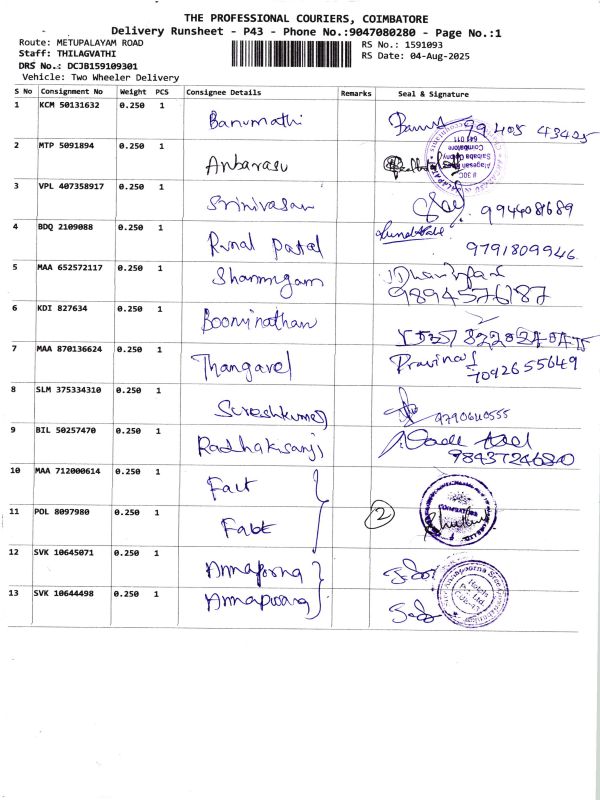 THE PROFESSIONAL COURIERS, COIMBATORE
Delivery Runsheet - P43 - Phone No.:9047080280 - Page No.:1
Route: METUPALAYAM ROAD RS No.: 1591093
Staff: THILAGVATHI RS Date: 04-Aug-2025
DRS No.: DCJB159109301
Vehicle: Two Wheeler Delivery
S No Consignment No Weight PCS Consignee Details Remarks Seal & Signature
1 KCM 50131632 0.250 1 Banumathi 99405 43405
2 MTP 5091894 0.250 1 Anbarasu
3 VPL 407358917 0.250 1 Srinivasan 9944081689
4 BDQ 2109088 0.250 1 Runal Patel 9791809946
5 MAA 652572117 0.250 1 Shanmugam 9894576187
6 KDI 827634 0.250 1 Boominathan
7 MAA 870136624 0.250 1 Thangavel 7092655649
8 SLM 375334310 0.250 1 Sureshkumar
9 BIL 50257470 0.250 1 Radhakisanji
10 MAA 712000614 0.250 1 Fact
11 POL 8097980 0.250 1 2
12 SVK 10645071 0.250 1 Annaporna
13 SVK 10644498 0.250 1